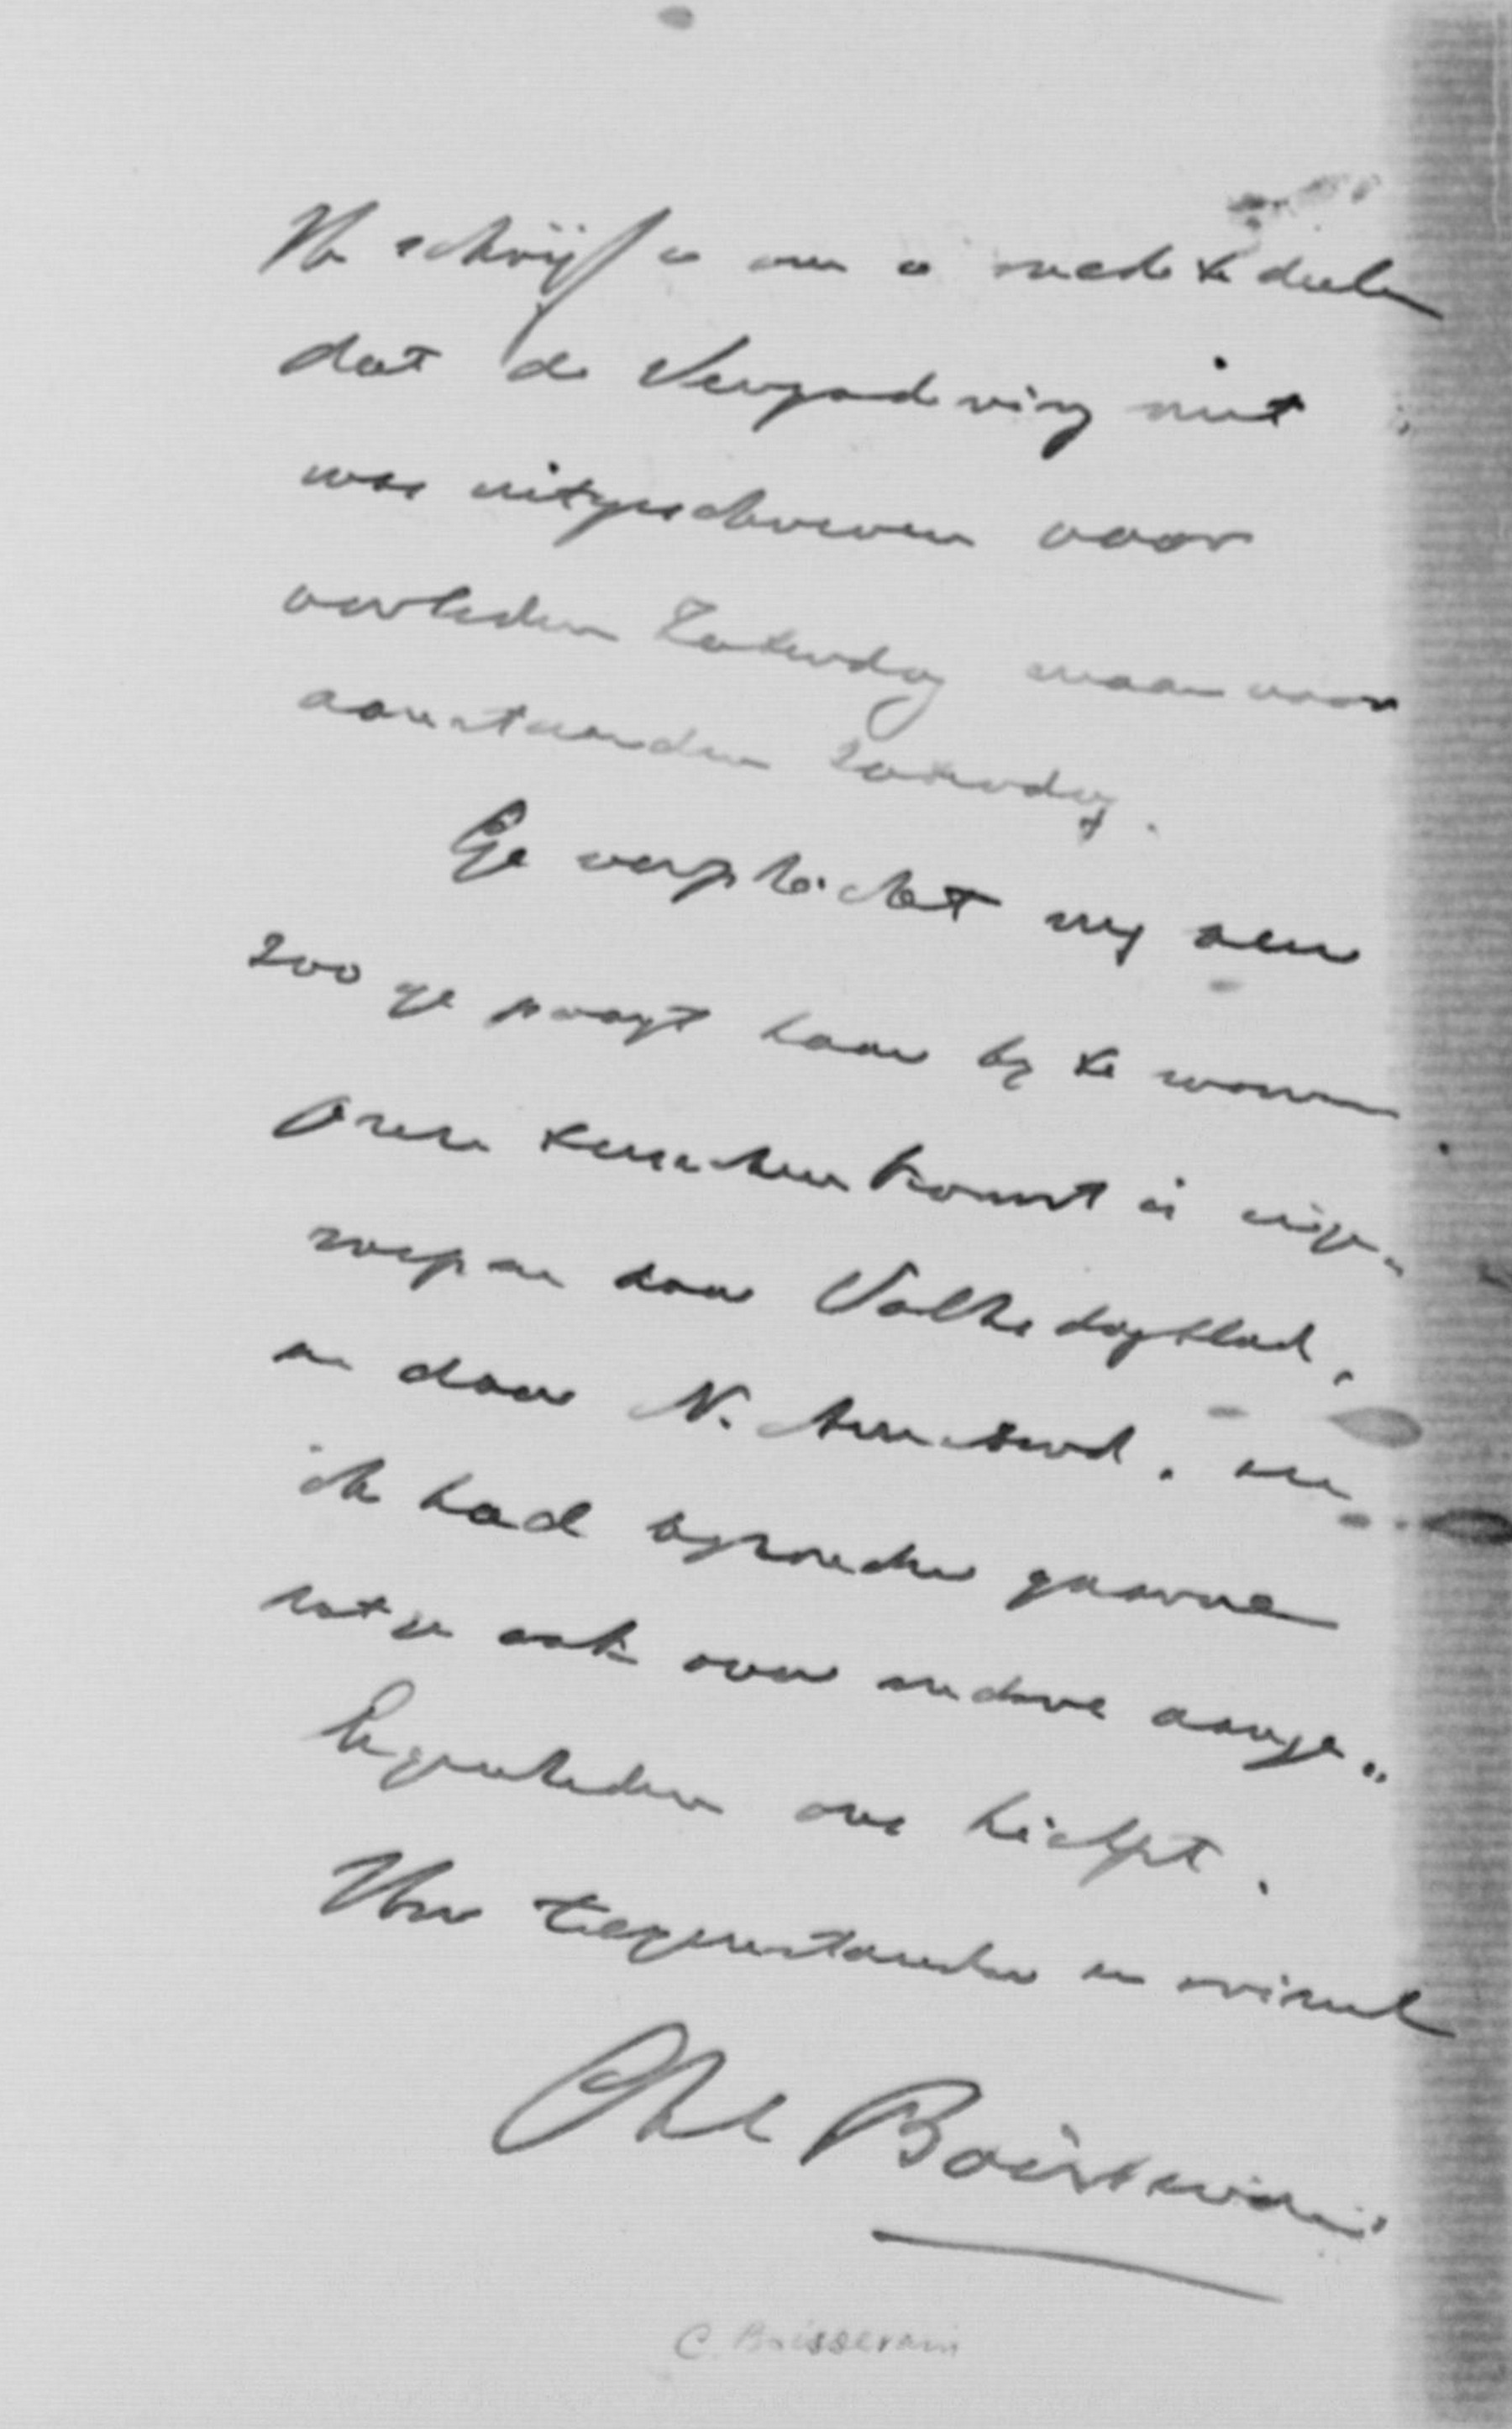 Ik schrijf u om u mede te deelen
dat de Vergadering niet
was uitgeschreven voor
verleden Zaterdag maar voor
aanstaanden Zaterdag.
Ge verplicht mij zeer
zoo ge poogt haar bij te wonen
Onze tenseinde komst is
roepen door Volksdagblad,
en door N. Amsterd. en
ik had bijzonder gaarne
dat ge ook over andere aange„
legenheden ons licht.
Uw tegenstander en vriend
Ch Boissevain
C. Boissevain